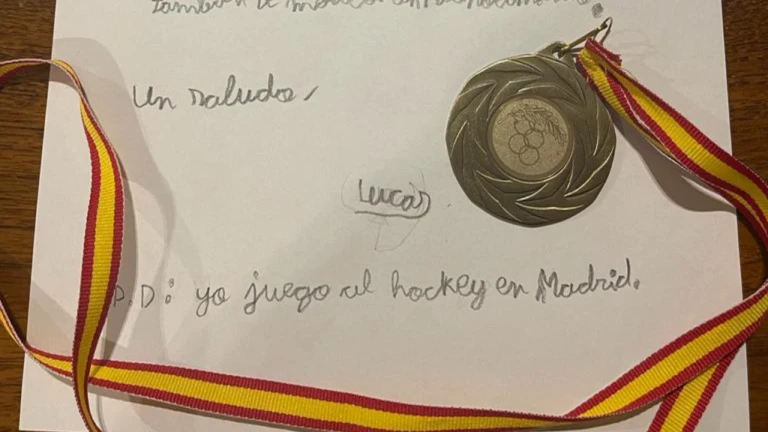 también te
Un saludo,
Lucas
P.D: yo juego al hockey en Madrid.